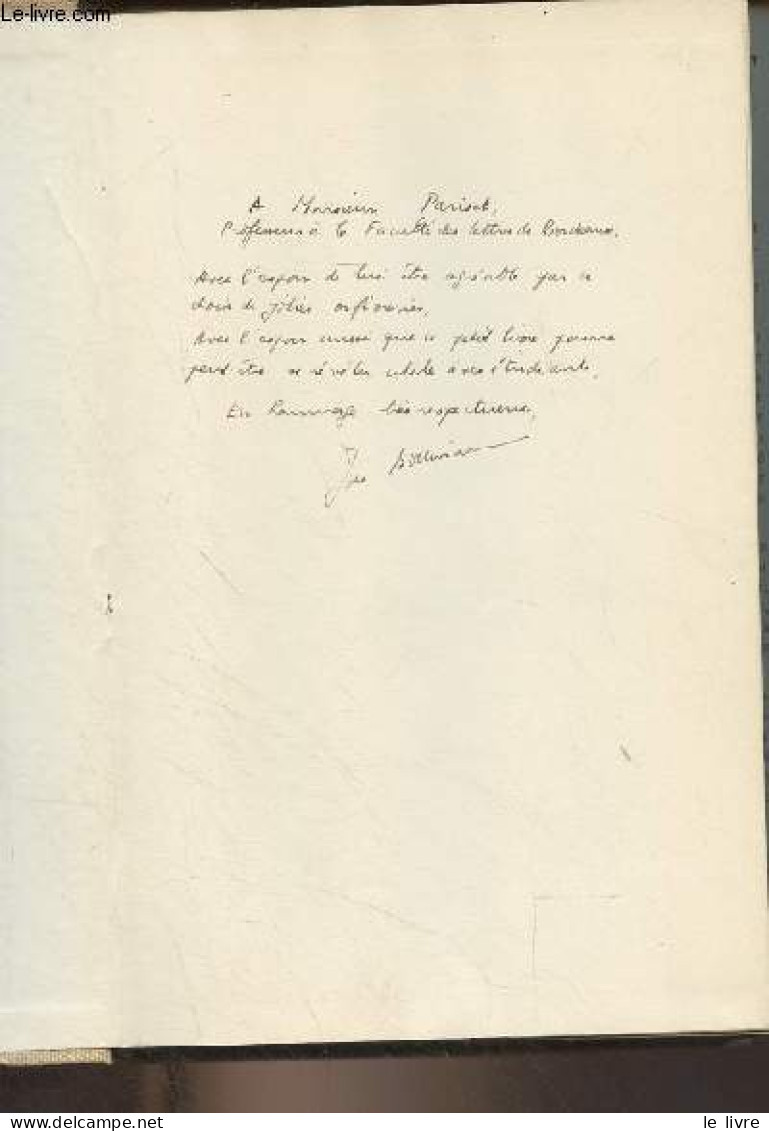 Le-livre.com
A Monsieur Parisot,
Professeur à la Faculté des lettres de Bordeaux.
Avec l'espoir de lui être agréable par ce
choix de jolies
Avec l'espoir aussi que ce petit livre pourra
peut être se révéler utile à ses étudiants.
En hommage très respectueux,
le livre